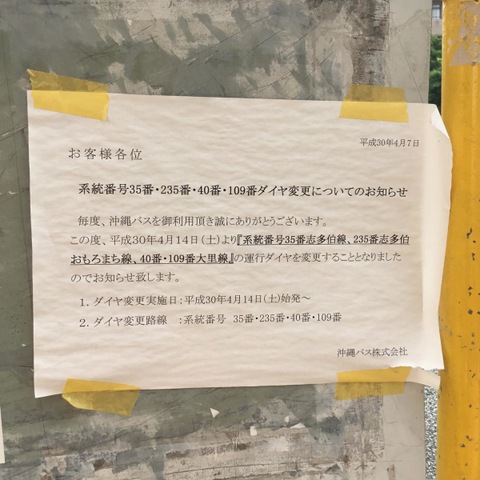 平成30年4月7日
お客様各位
系統番号35番・235番・40番・109番ダイヤ変更についてのお知らせ
毎度、沖縄バスを御利用頂き誠にありがとうございます。
この度、平成30年4月14日(土)より『系統番号35番志多伯線、235番志多伯
おもろまち線、40番・109番大里線』の運行ダイヤを変更することとなりました
のでお知らせ致します。
1. ダイヤ変更実施日:平成30年4月14日(土)始発～
2. ダイヤ変更路線 :系統番号 35番・235番・40番・109番
沖縄バス株式会社